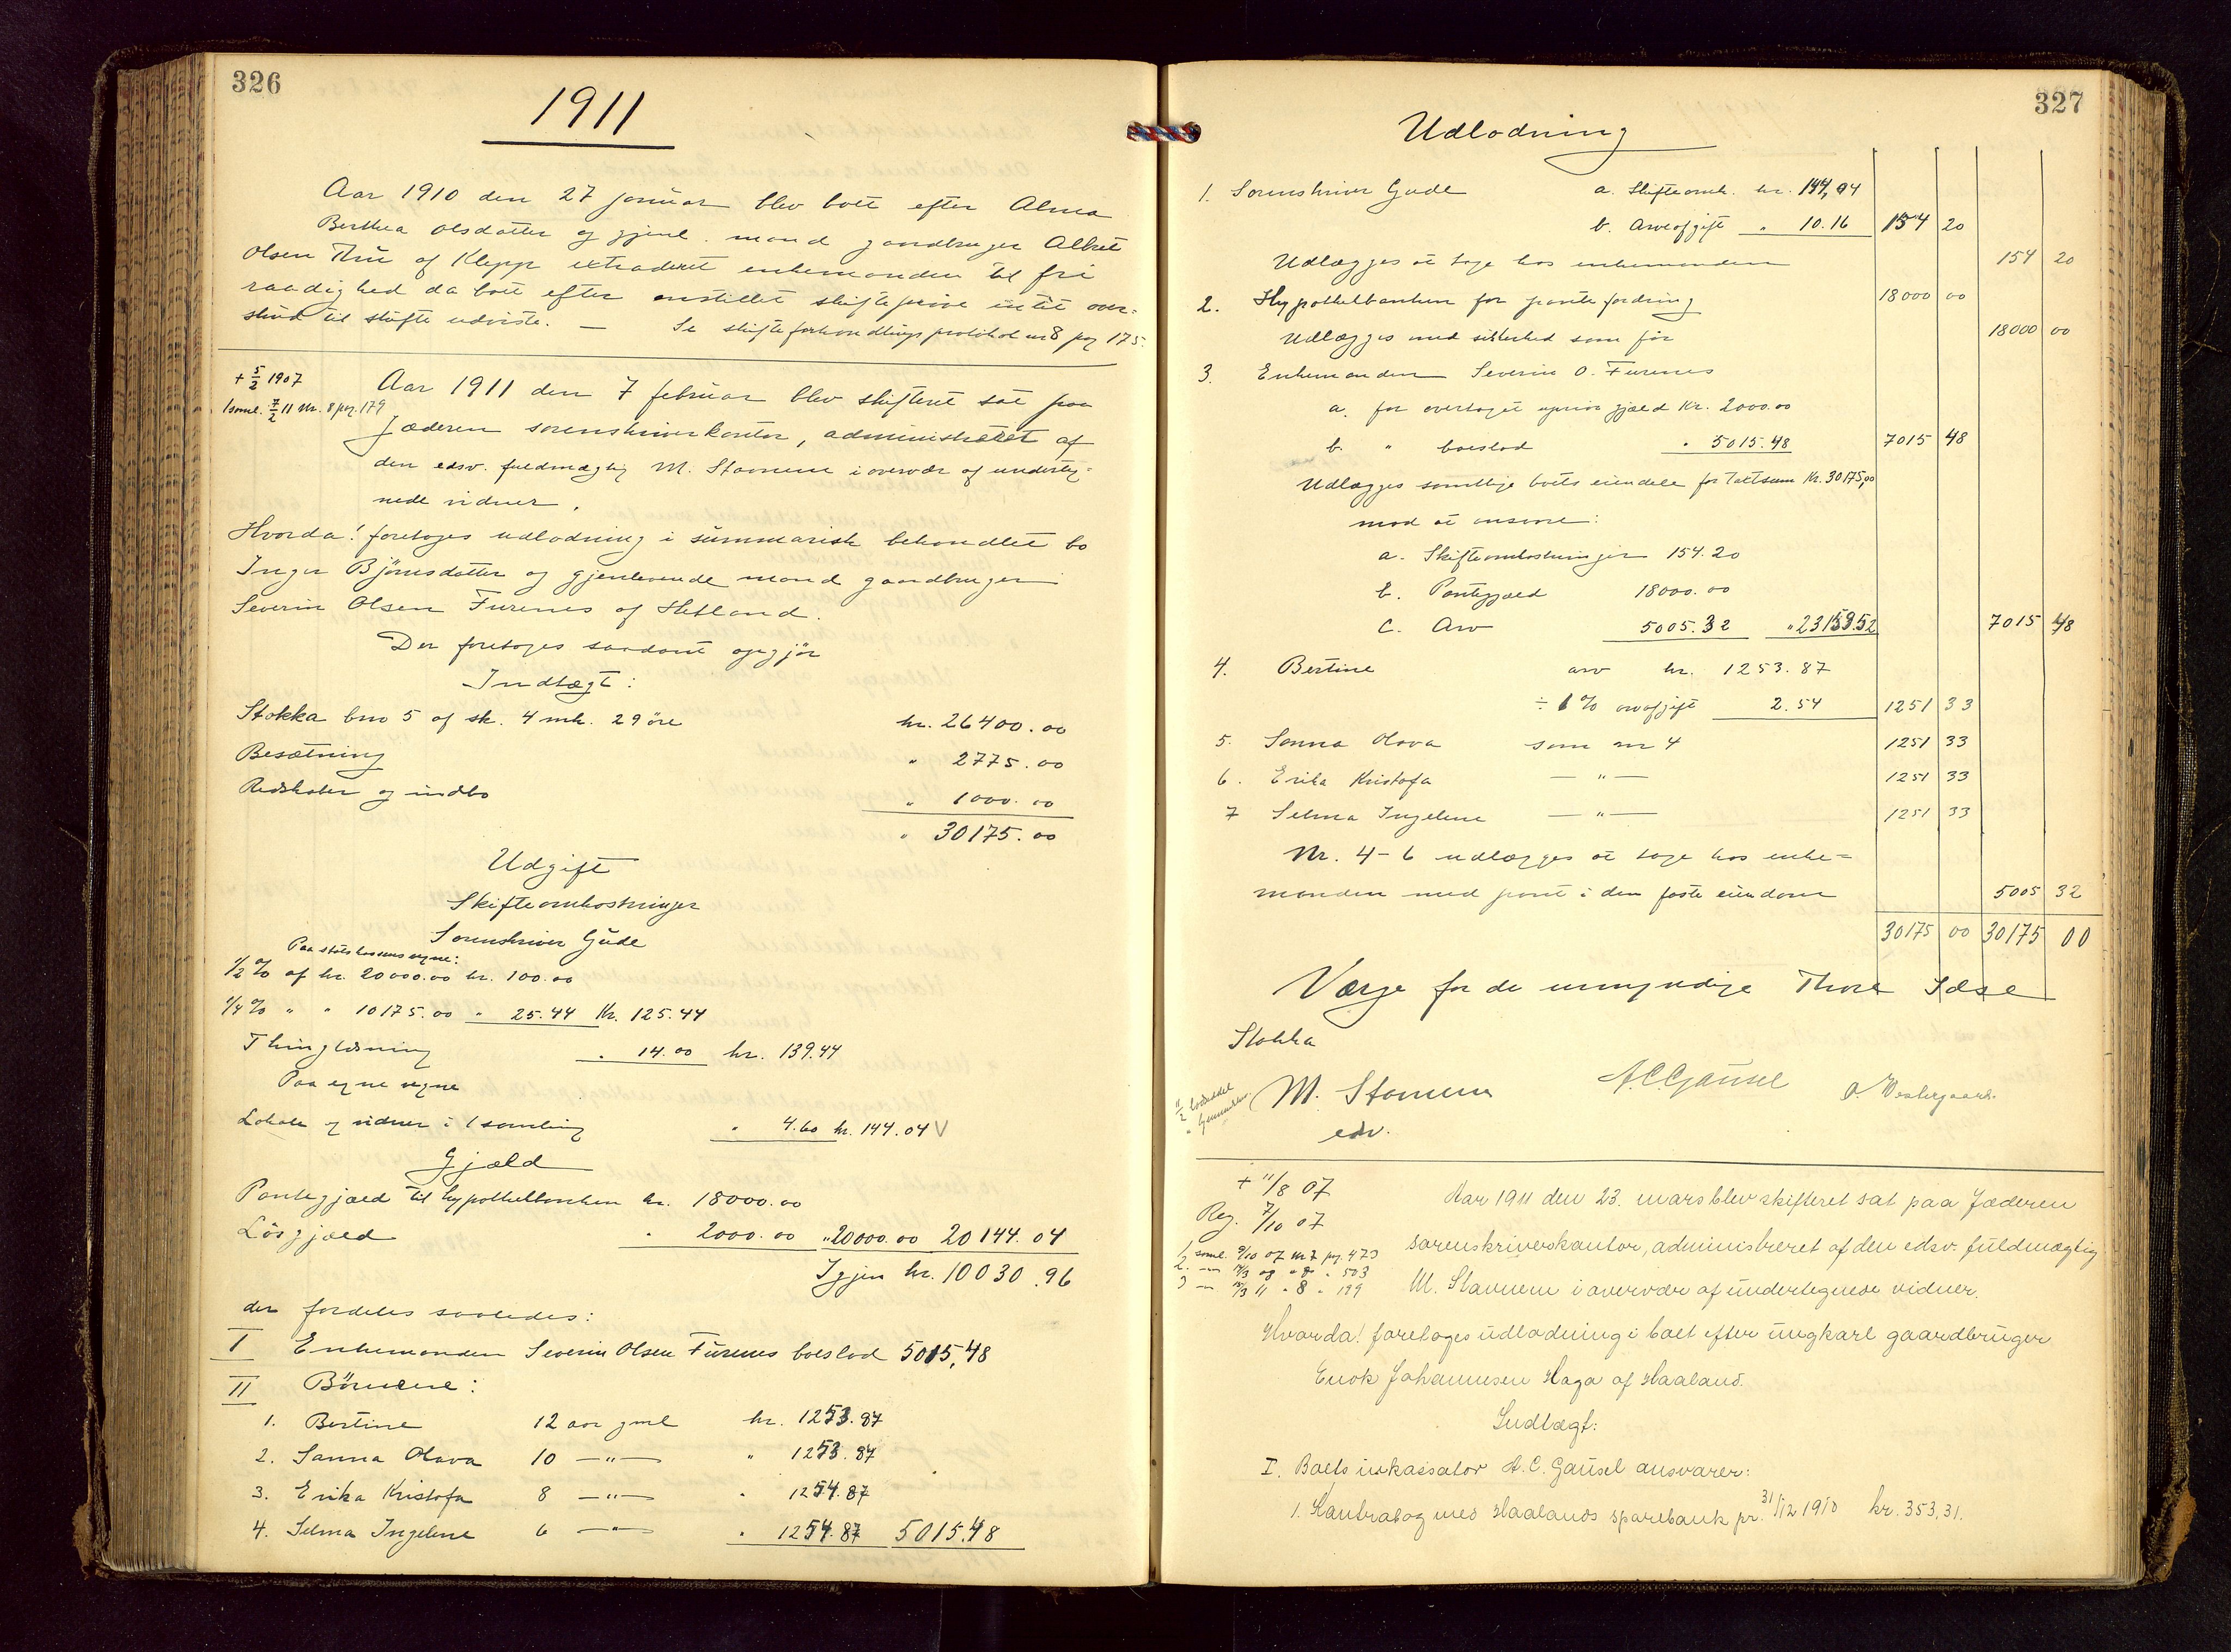 326
1911
Aar 1910 den 27 januar blev boet efter Alma
Berthea Olsdatter og gjenl. mand gaardbruger Albret
Olsen Thu af Klepp extraderet enkemanden til fri
raadighed da boet efter anstillet skifteprøve intet over-
skud til skifte udviste. — Se skifteforhandlingsprotokol nr 8 pag 175.
+ 5/2 1907
1 saml. 7/2 11 Nr. 8 pag. 179
Aar 1911 den 7 februar blev skifteret sat paa
Jæderen sorenskriverkontor, administreret af
den edsv. fuldmægtig M. Stavnem i overvær af underteg-
nede vidner.
Hvorda! foretoges udlodning i summarisk behandlet bo
Inger Bjørnsdatter og gjenlevende mand gaardbruger
Severin Olsen Furenes af Hetland.
Der foretoges saadant opgjør
Indtægt:
Stokka bno 5 af sk. 4 mk. 29 øre kr. 26400.00
Besætning " 2775.00
Redskaber og indbo " 1000.00
" 30175.00
Udgift
Skifteomkostninger
Sorenskriver Gude
Paa statskassens vegne:
1/2 % af kr. 20000.00 kr. 100.00
1/4 % " " 10175.00 " 25.44 Kr. 125.44
Thinglæsning " 14.00 kr. 139.44
Paa egne vegne
Lokale og vidner i 1 samling " 4.60 kr. 144.04 V
Gjæld
Pantegjæld til hypothekbanken kr. 18000.00
Løsgjæld " 2000.00 " 20000.00 20144.04
Igjen kr. 10030.96
der fordeles saaledes:
I Enkemanden Severin Olsen Furenes boeslod 5015,48
II Børnene:
1. Bertine 12 aar gml kr. 1253.87
2. Sanna Olava 10 —"— " 1253.87
3. Erika Kristofa 8 —"— " 1254.87
4. Selma Ingelene 6 —"— " 1254.87 5015.48
327
Udlodning
1. Sorenskriver Gude a. Skifteomk. kr. 144,04
b. Arveafgift " 10.16 154 20
Udlægges at tage hos enkemanden 154 20
2. Hypothekbanken for pantefordring 18000 00
Udlægges med sikkerhed som før 18000 00
3. Enkemanden Severin O. Furenes
a. for overtaget uprior gjæld Kr. 2000.00
b. " boeslod " 5015.48 7015 48
Udlægges samtlige boets eiendele for Taktsum Kr. 30175,00
mod at ansvare:
a. Skifteomkostninger 154.20
b. Pantegjæld 18000.00
c. Arv 5005.32 " 23159.52 7015 48
4. Bertine arv kr. 1253.87
÷ 1 % arveafgift 2.54 1251 33
5. Sanna Olava som nr 4 1251 33
6. Erika Kristofa —"— 1251 33
7 Selma Ingelene —"— 1251 33
Nr. 4-6 udlægges at tage hos enke-
manden med pant i den faste eiendom 5005 32
30175 00 30175 00
Værge for de umyndige Thore Idsø
Stokka
M. Stavnem A.C Gausel O. Vestergaard.
edsv.
+ 11/8 07
Reg. 7/10 07
1 saml. 9/10 07 nr 7 pag. 473
2. — 14/3 08 " 8 " 503
3 — 23/3 11 " 8 " 199
Aar 1911 den 23. mars blev skifteret sat paa Jæderen
sorenskriverskontor, administreret af den edsv. fuldmægtig
M. Stavnem i overvær af undertegnede vidner.
Hvorda! foretoges udlodning i boet efter ungkarl gaardbruger
Enok Johannesen Haga af Haaland.
Indtægt:
I. Boets inkassator A. C. Gausel ansvarer:
1. Kontrabog med Haalands sparebank pr. 31/12 1910 kr. 353,31.